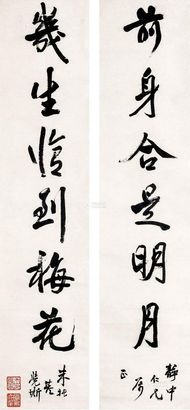 前身合是明月
靜中
仁兄屬
正
幾生修到梅花